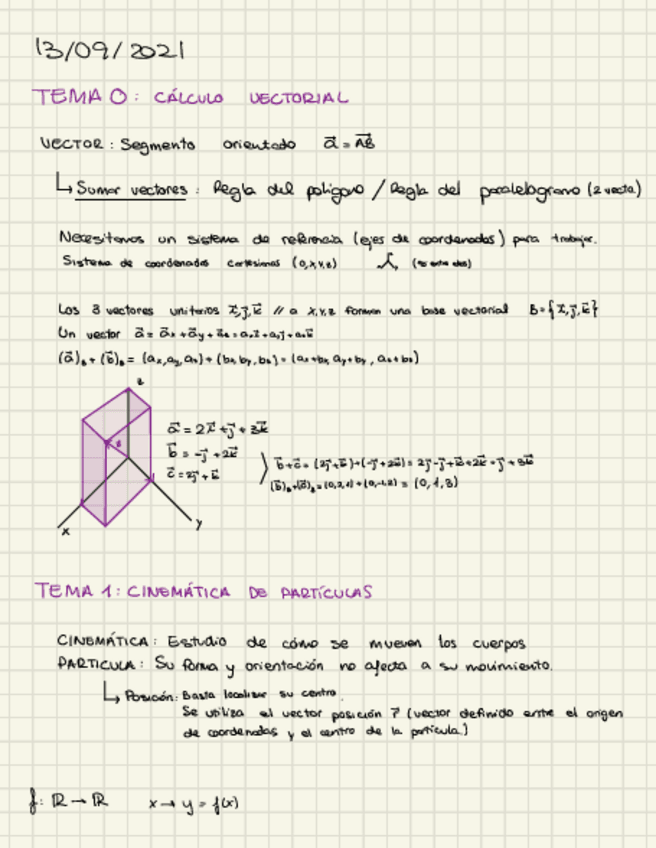 13/09/2021
TEMA 0: CÁLCULO VECTORIAL
VECTOR: Segmento orientado a⃗ = AB⃗
↳ Sumar vectores: Regla del polígono / Regla del paralelogramo (2 vects)
Necesitamos un sistema de referencia (ejes de coordenadas) para trabajar.
Sistema de coordenadas cartesianas (0,x,y,z)
Los 3 vectores unitarios i⃗, j⃗, k⃗ // a x,y,z forman una base vectorial B={i⃗, j⃗, k⃗}
Un vector a⃗ = a⃗x + a⃗y + a⃗z = axi⃗ + ayj⃗ + azk⃗
(a⃗)B + (b⃗)B = (ax, ay, az) + (bx, by, bz) = (ax+bx, ay+by, az+bz)
z
a⃗ = 2i⃗ + j⃗ + 3k⃗
b⃗ = -j⃗ + 2k⃗
c⃗ = 2j⃗ + k⃗
b⃗+c⃗ = (2j⃗+k⃗)+(-j⃗+2k⃗) = 2j⃗-j⃗+k⃗+2k⃗ = j⃗+3k⃗
(b⃗)B+(c⃗)B = (0,2,1)+(0,-1,2) = (0,1,3)
x
y
TEMA 1: CINEMÁTICA DE PARTÍCULAS
CINEMÁTICA: Estudio de cómo se mueven los cuerpos
PARTICULA: Su forma y orientación no afecta a su movimiento.
↳ Posición: Basta localizar su centro.
Se utiliza el vector posición r⃗ (vector definido entre el origen
de coordenadas y el centro de la partícula.)
f: ℝ → ℝ x → y = f(x)